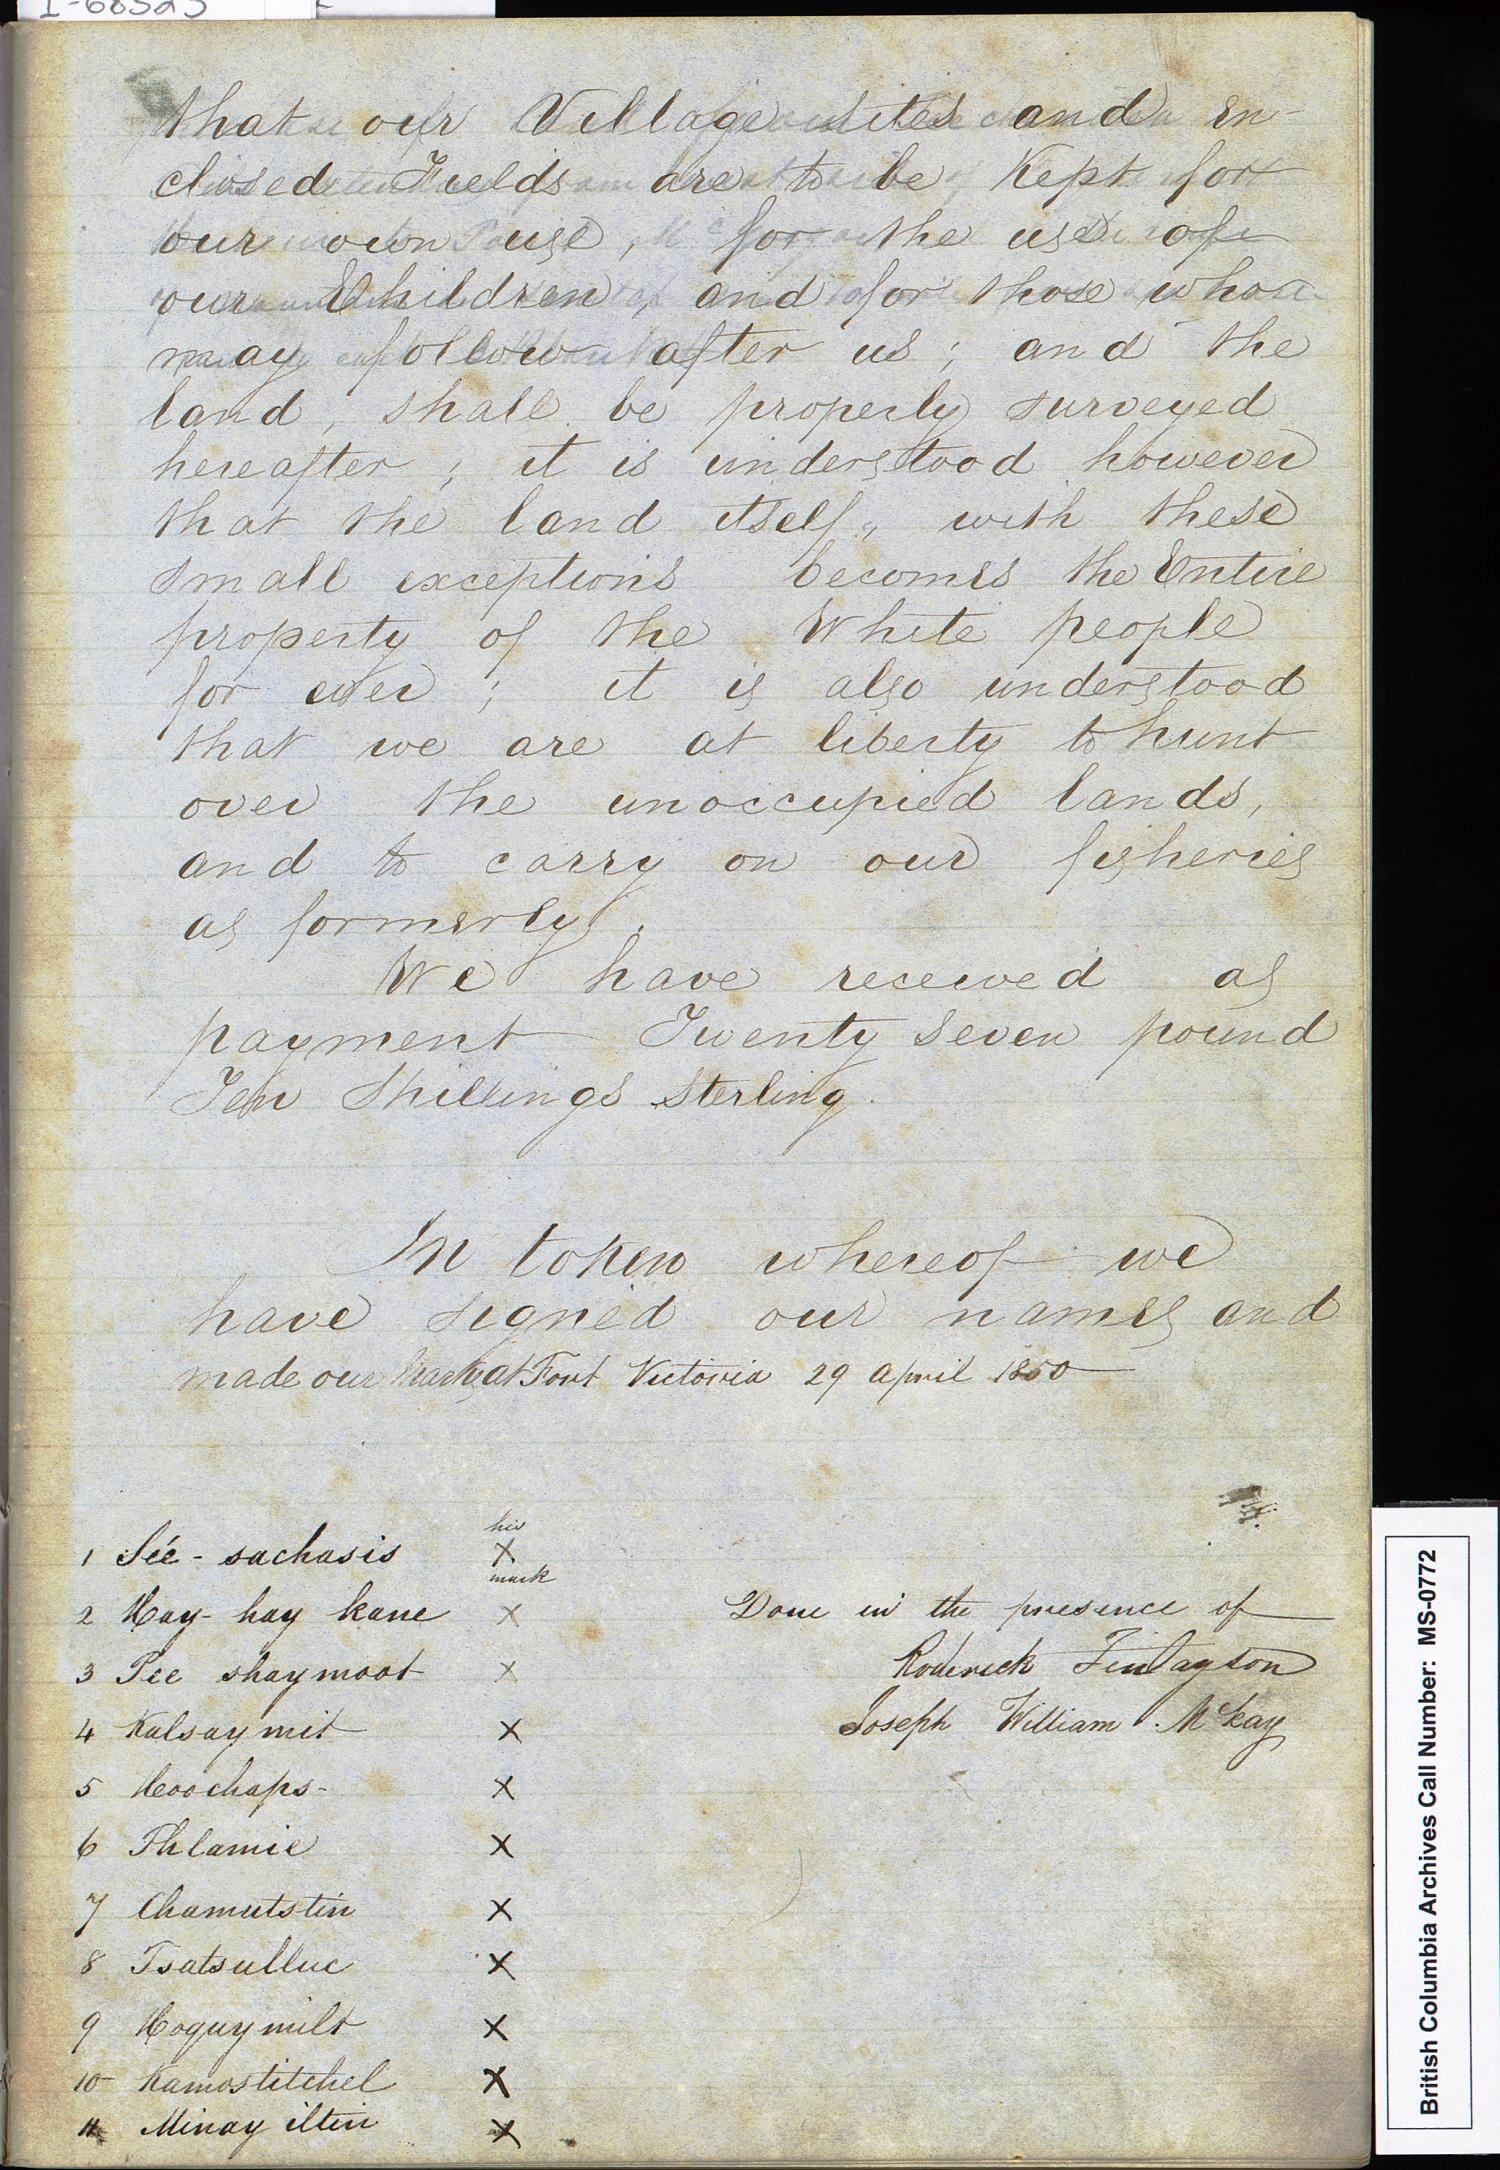 I-68323
that our Village sites and en-
closed Fields are to be Kept for
our own use, for the use of
our Children, and for those who
may follow after us; and the
land, shall be properly surveyed
hereafter; it is understood however
that the land itself, with these
small exceptions becomes the Entire
property of the White people
for ever; it is also understood
that we are at liberty to hunt
over the unoccupied lands,
and to carry on our fisheries
as formerly.
We have received as
payment Twenty Seven pound
Ten Shillings Sterling.
In token whereof we
have signed our names and
made our Marks at Fort Victoria 29 April 1850
his
1 Sée-sachasis X
mark
2 Hay-hay kane X
3 Pee shaymoot X
4 Kalsaymit X
5 Coochaps- X
6 Thlamie X
7 Chamutstin X
8 Tsatsulluc X
9 Hoquymilt X
10 Kamostitchel X
11 Minay iltin X
Done in the presence of
Roderick Finlayson
Joseph William McKay
British Columbia Archives Call Number: MS-0772